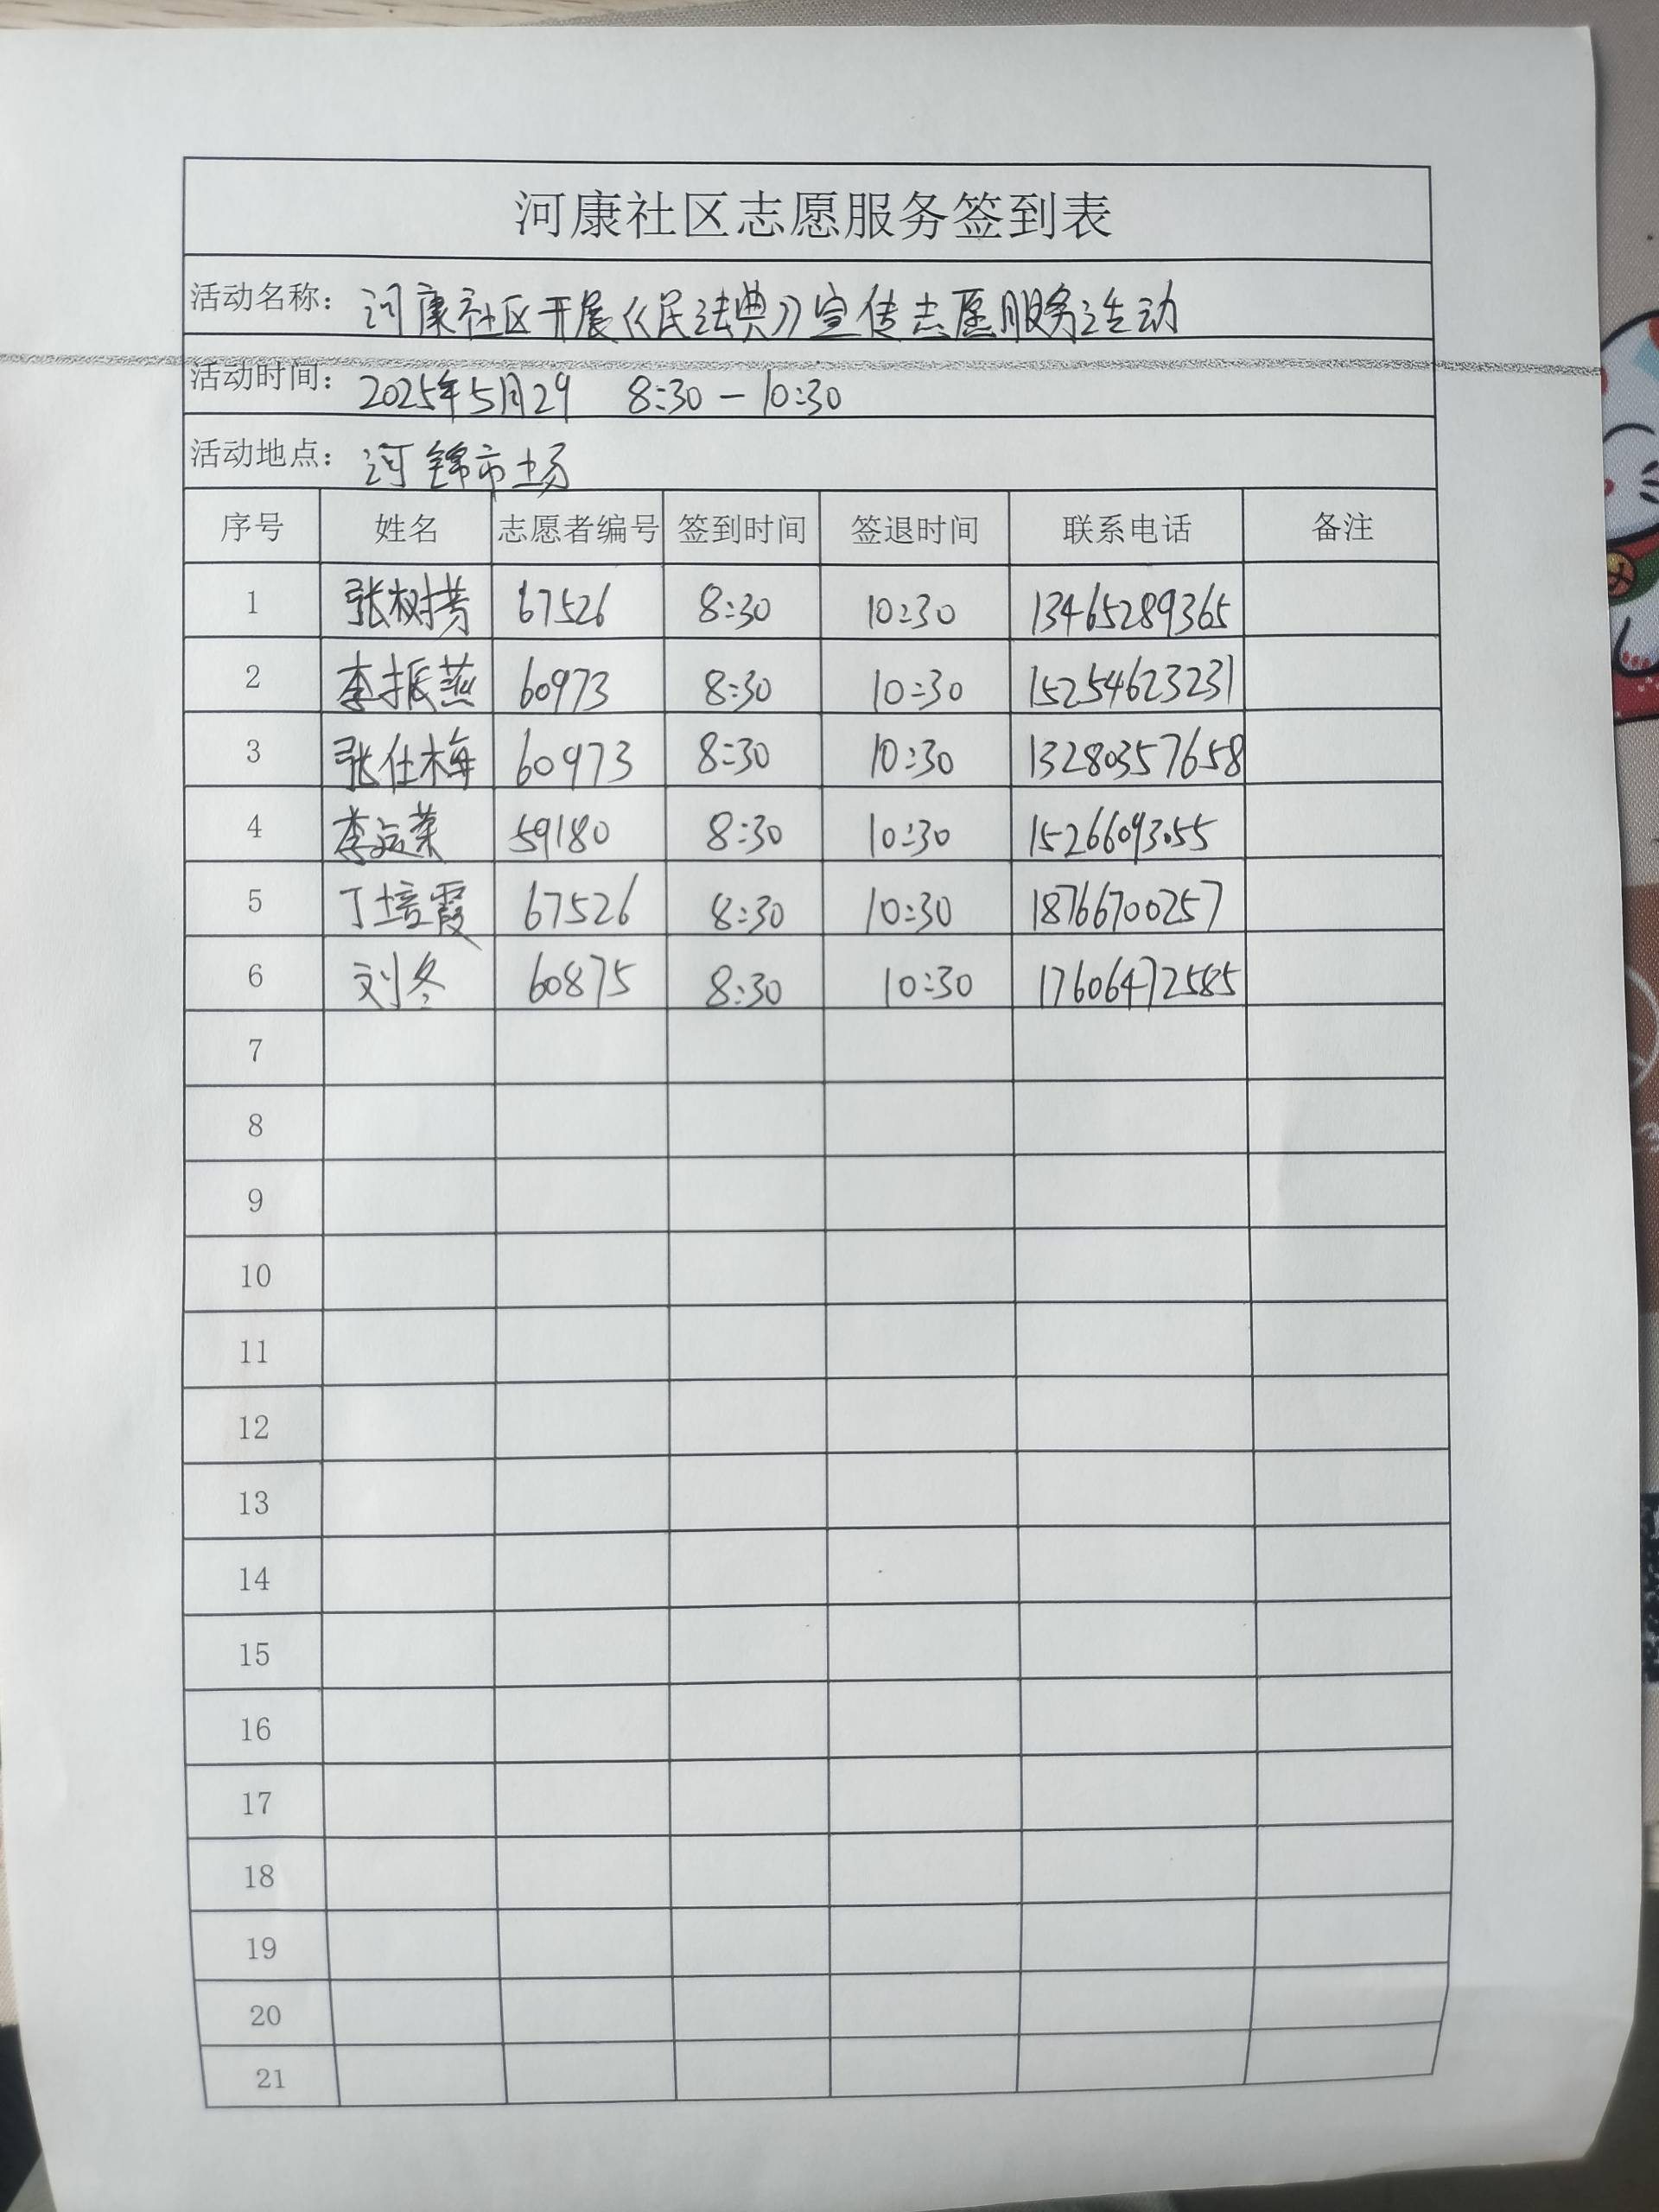 河康社区志愿服务签到表
活动名称: 河康社区开展《民法典》宣传志愿服务活动
活动时间: 2025年5月29 8:30—10:30
活动地点: 河锦市场
序号 姓名 志愿者编号 签到时间 签退时间 联系电话 备注
1 张树芳 67526 8:30 10:30 13465289365
2 李振燕 60973 8:30 10:30 15254623231
3 张仕梅 60973 8:30 10:30 13280357658
4 59180 8:30 10:30 15266093055
5 丁培霞 67526 8:30 10:30 18766700257
6 刘冬 60875 8:30 10:30 17606472585
7
8
9
10
11
12
13
14
15
16
17
18
19
20
21